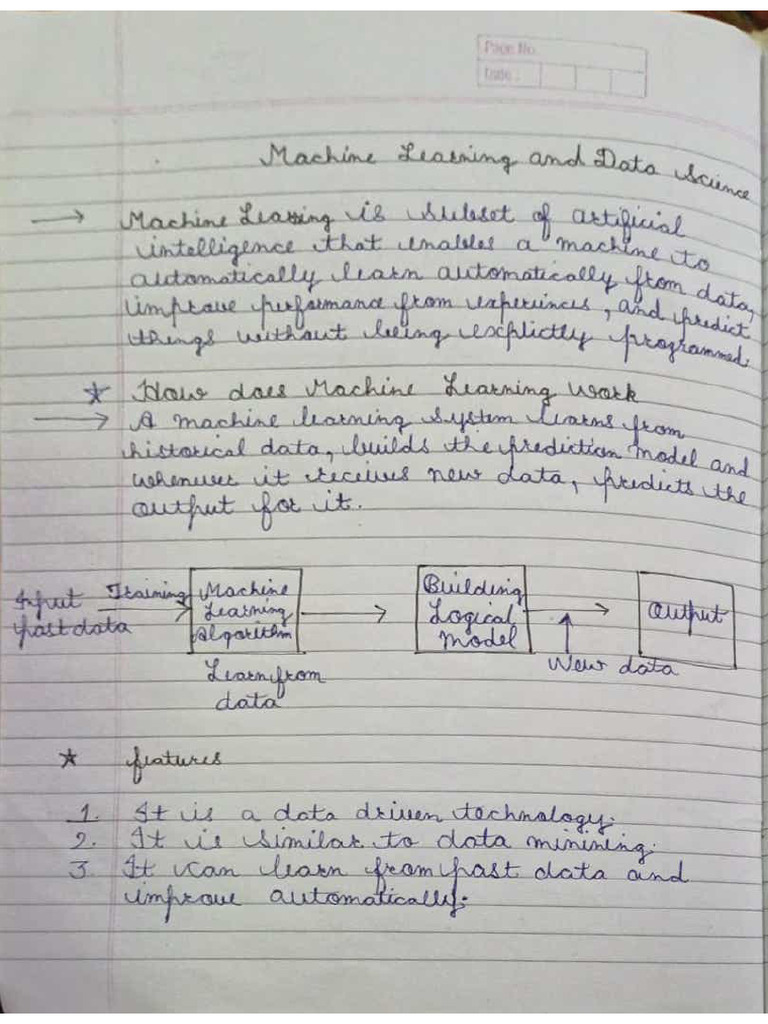 Page No.
Date :
Machine Learning and Data Science
→ Machine Learning is subset of artificial
intelligence that enables a machine to
automatically learn automatically from data,
improve performance from experiences, and predict
things without being explictly programmed.
★ How does Machine Learning Work
→ A machine learning system learns from
historical data, builds the prediction model and
whenever it receives new data, predicts the
output for it.
Input Training
past data
Machine
Learning
Algorithm
Learn from
data
Building
Logical
Model
New data
Output
★ features
1. It is a data driven technology.
2. It is similar to data minining.
3. It can learn from past data and
improve automatically.